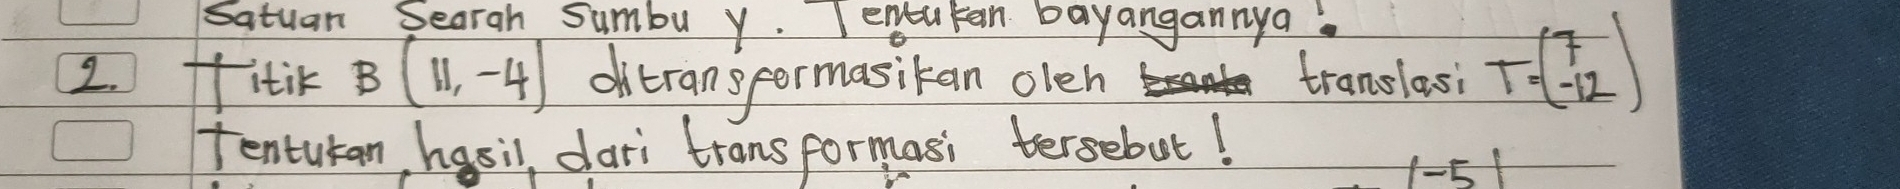 Satuan Searah Sumbu y. Tentukan bayangannya!
2. Titik B (11, -4) ditransformasikan oleh translasi T = (7 -12)
Tentukan hasil dari transformasi tersebut!
-5